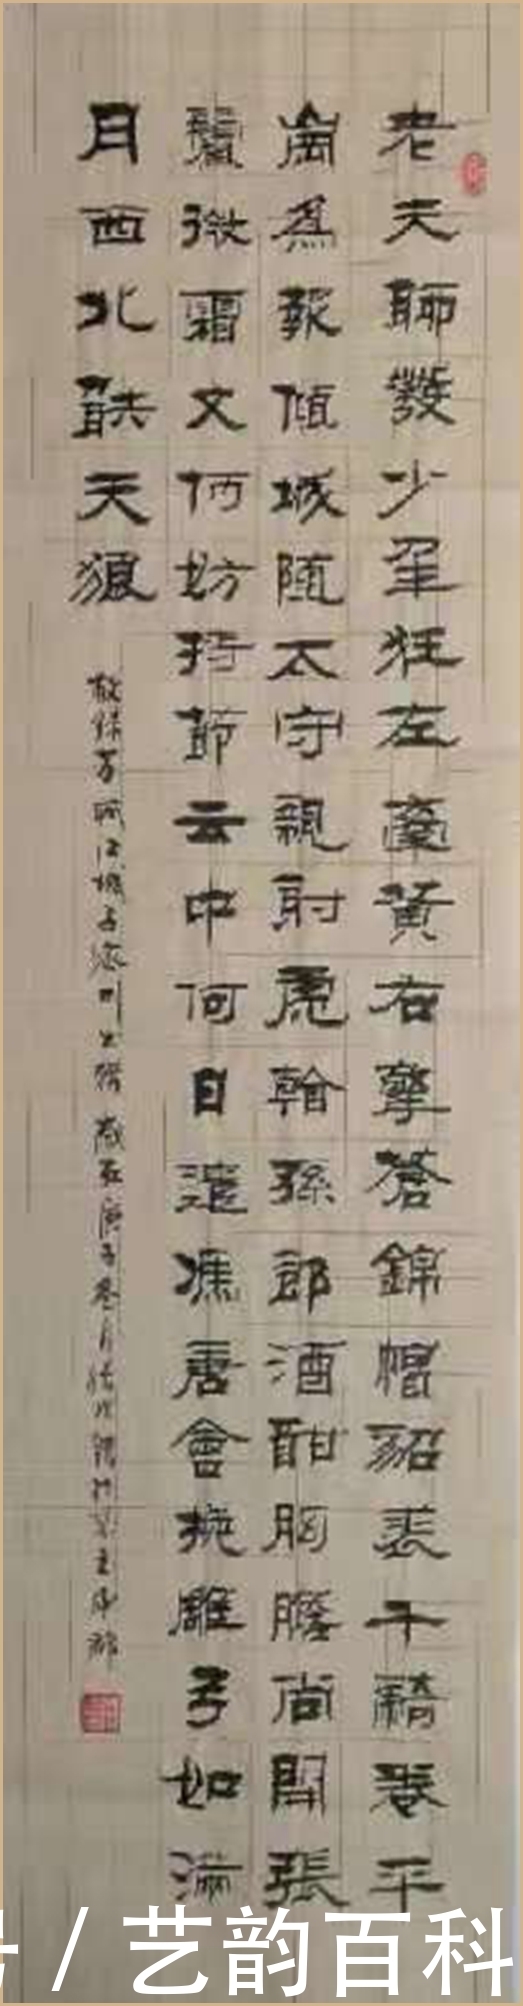 老夫聊發少年狂左牽黃右擎蒼錦帽貂裘千騎卷平
崗為報傾城隨太守親射虎看孫郎酒酣胸膽尚開張
鬢微霜又何妨持節云中何日遣馮唐會挽雕弓如滿
月西北望天狼
江城子密州出獵 歲在庚子
号 / 艺韵百科